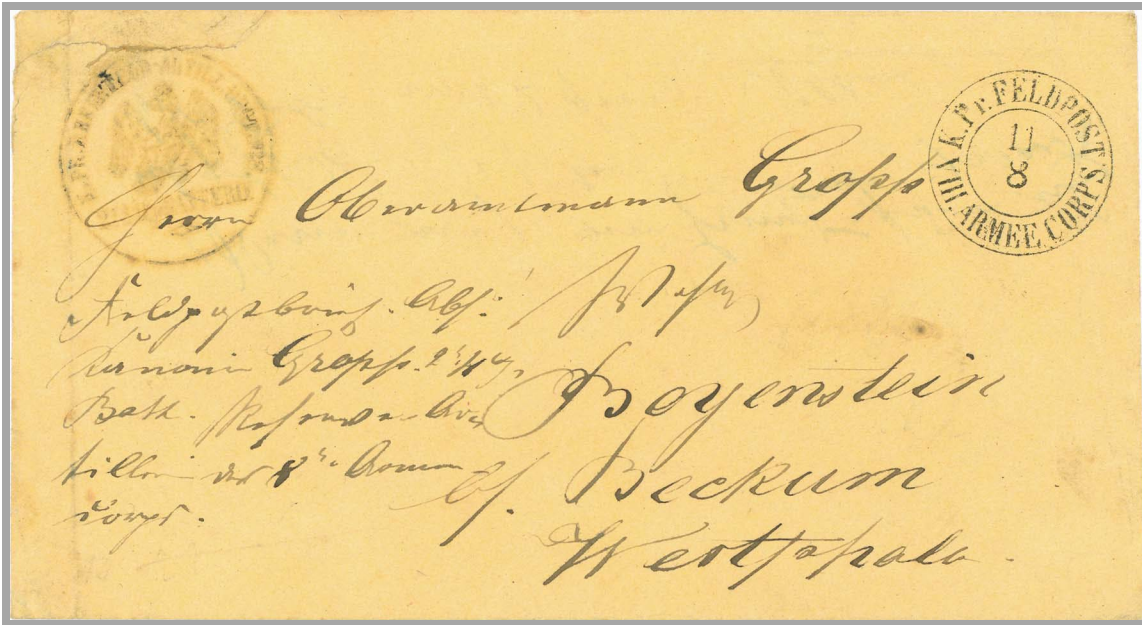 K. Pr. FELDPOST
VIII. ARMEE CORPS.
11
8
Herrn Oberamtmann Gropp
Feldpostbrief. Abs:
Kanonier Gropp.
Batt. Reserve Ar
tillerie des 8ten Armee
Corps.
Boyenstein
bf. Beckum
Westphalen